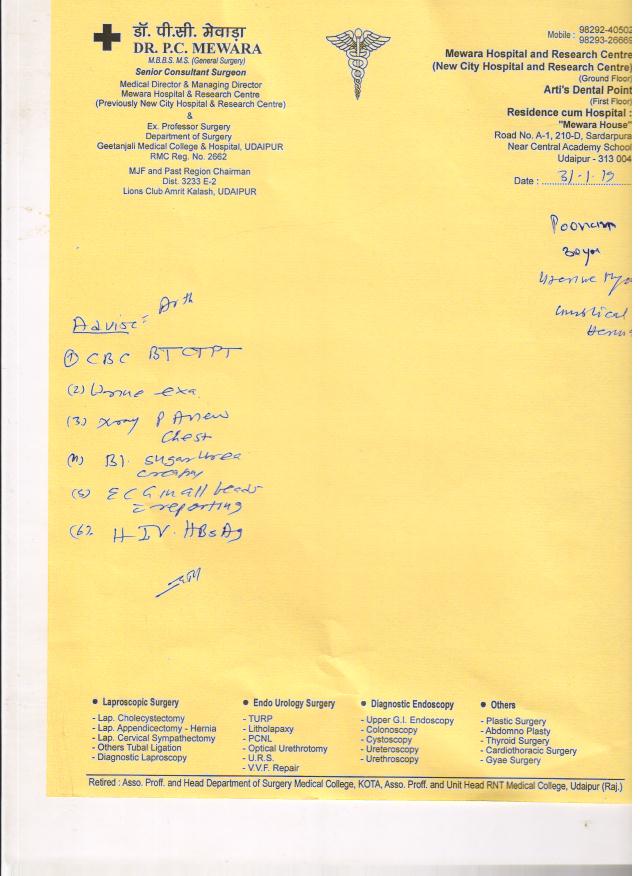 डॉ. पी.सी. मेवाड़ा
DR. P.C. MEWARA
M.B.B.S. M.S. (General Surgery)
Senior Consultant Surgeon
Medical Director & Managing Director
Mewara Hospital & Research Centre
(Previously New City Hospital & Research Centre)
&
Ex. Professor Surgery
Department of Surgery
Geetanjali Medical College & Hospital, UDAIPUR
RMC Reg. No. 2662
MJF and Past Region Chairman
Dist. 3233 E-2
Lions Club Amrit Kalash, UDAIPUR
Mobile : 98292-40502
98293-26669
Mewara Hospital and Research Centre
(New City Hospital and Research Centre)
(Ground Floor)
Arti's Dental Point
(First Floor)
Residence cum Hospital :
"Mewara House"
Road No. A-1, 210-D, Sardarpura
Near Central Academy School
Udaipur - 313 004
Date : 31-1-19
Poonam
30yr
Advise:
(1) CBC BT CT PT
(2) Urine exa.
(3) Xray P A view
Chest
(4) Bl. sugar Urea
(5) ECG in all leads
reporting
(6) HIV. HBsAg
● Laproscopic Surgery
- Lap. Cholecystectomy
- Lap. Appendicectomy - Hernia
- Lap. Cervical Sympathectomy
- Others Tubal Ligation
- Diagnostic Laproscopy
● Endo Urology Surgery
- TURP
- Litholapaxy
- PCNL
- Optical Urethrotomy
- U.R.S.
- V.V.F. Repair
● Diagnostic Endoscopy
- Upper G.I. Endoscopy
- Colonoscopy
- Cystoscopy
- Ureteroscopy
- Urethroscopy
● Others
- Plastic Surgery
- Abdomno Plasty
- Thyroid Surgery
- Cardiothoracic Surgery
- Gyae Surgery
Retired : Asso. Proff. and Head Department of Surgery Medical College, KOTA, Asso. Proff. and Unit Head RNT Medical College, Udaipur (Raj.)